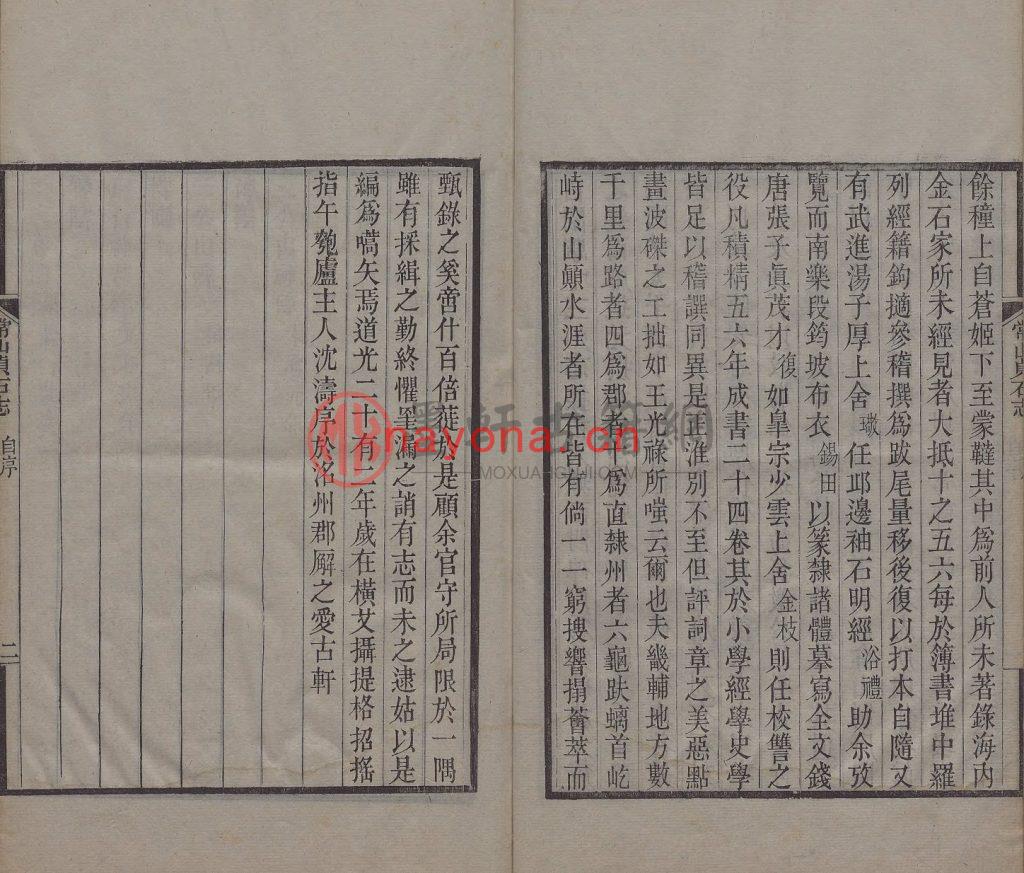 餘穜上自蒼姬下至蒙韃其中爲前人所未著錄海内
金石家所未經見者大抵十之五六每於簿書堆中羅
列經籍鉤擿參稽撰爲跋尾量移後復以打本自隨又
有武進湯子厚上舍 璥 任邱邊袖石明經 浴禮 助余攷
覽而南樂段筠坡布衣 錫田 以篆隸諸體摹寫全文錢
唐張子眞茂才 復 如皇宗少雲上舍 金枝 則任校讐之
役凡積精五六年成書二十四卷其於小學經學史學
皆足以稽譔同異是正淮別不至但評詞章之美惡點
畫波磔之工拙如王光祿所嗤云爾也夫畿輔地方數
千里爲路者四爲郡者十爲直隸州者六龜趺螭首屹
峙於山顚水涯者所在皆有倘一一窮搜響搨薈萃而
甄錄之奚啻什百倍蓰於是顧余官守所局限於一隅
雖有採緝之勤終懼罣漏之誚有志而未之逮姑以是
編爲嚆矢焉道光二十有二年歲在橫艾攝提格招搖
指午匏廬主人沈濤序於洺州郡廨之愛古軒
常山貞石志 自序 二
常山貞石志
墨軒古籍網
nayona.cn
MOXUANGUJI.COM